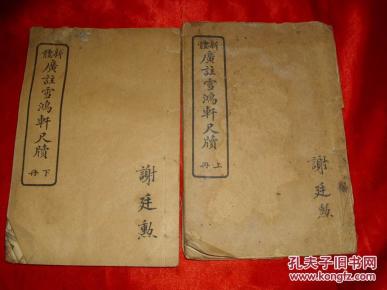 新體
廣註雪鴻軒尺牘
上冊
謝廷勲
新體
廣註雪鴻軒尺牘
下冊
謝廷勲
孔夫子旧书网